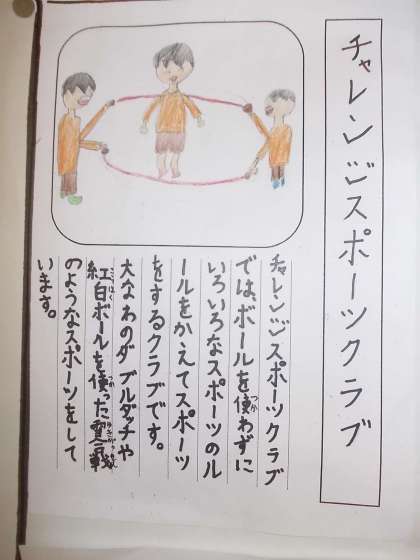 チャレンジスポーツクラブ
チャレンジスポーツクラブ
つか
では、ボールを使わずに
いろいろなスポーツのル
ールをかえてスポーツ
をするクラブです。
大なわのダブルダッチや
こうはく つか ゆきがっせん
紅白ボールを使った雪合戦
のようなスポーツをして
います。